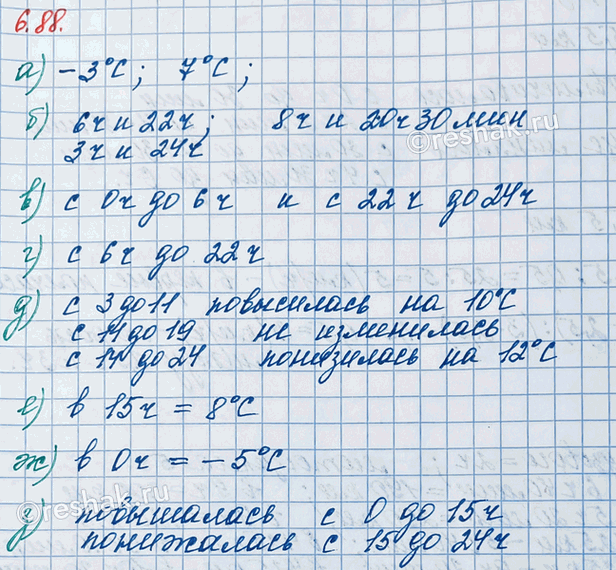 6.88.
а) -3°C; 7°C;
б) 6ч и 22ч; 8ч и 20ч 30мин
3ч и 24ч
в) с 0ч до 6ч и с 22ч до 24ч
г) с 6ч до 22ч
д) с 3 до 11 повысилась на 10°C
с 11 до 19 не изменилась
с 14 до 24 понизилась на 12°C
е) в 15ч = 8°C
ж) в 0ч = -5°C
з) повышалась с 0 до 15ч
понижалась с 15 до 24ч
reshak.ru
reshak.ru